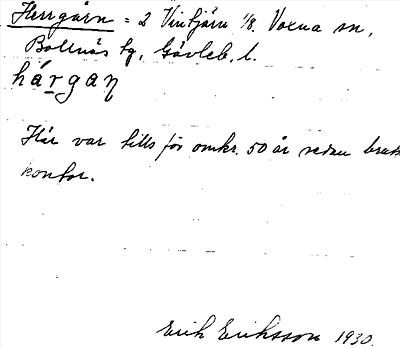 Herrgårn = 2 Vintjärn 1/8. Voxna sn,
Bollnäs tg, Gävleb. l.
hárgaɳ
Här var tills för omkr. 50 år sedan bruks
kontor.
Erik Eriksson 1930.